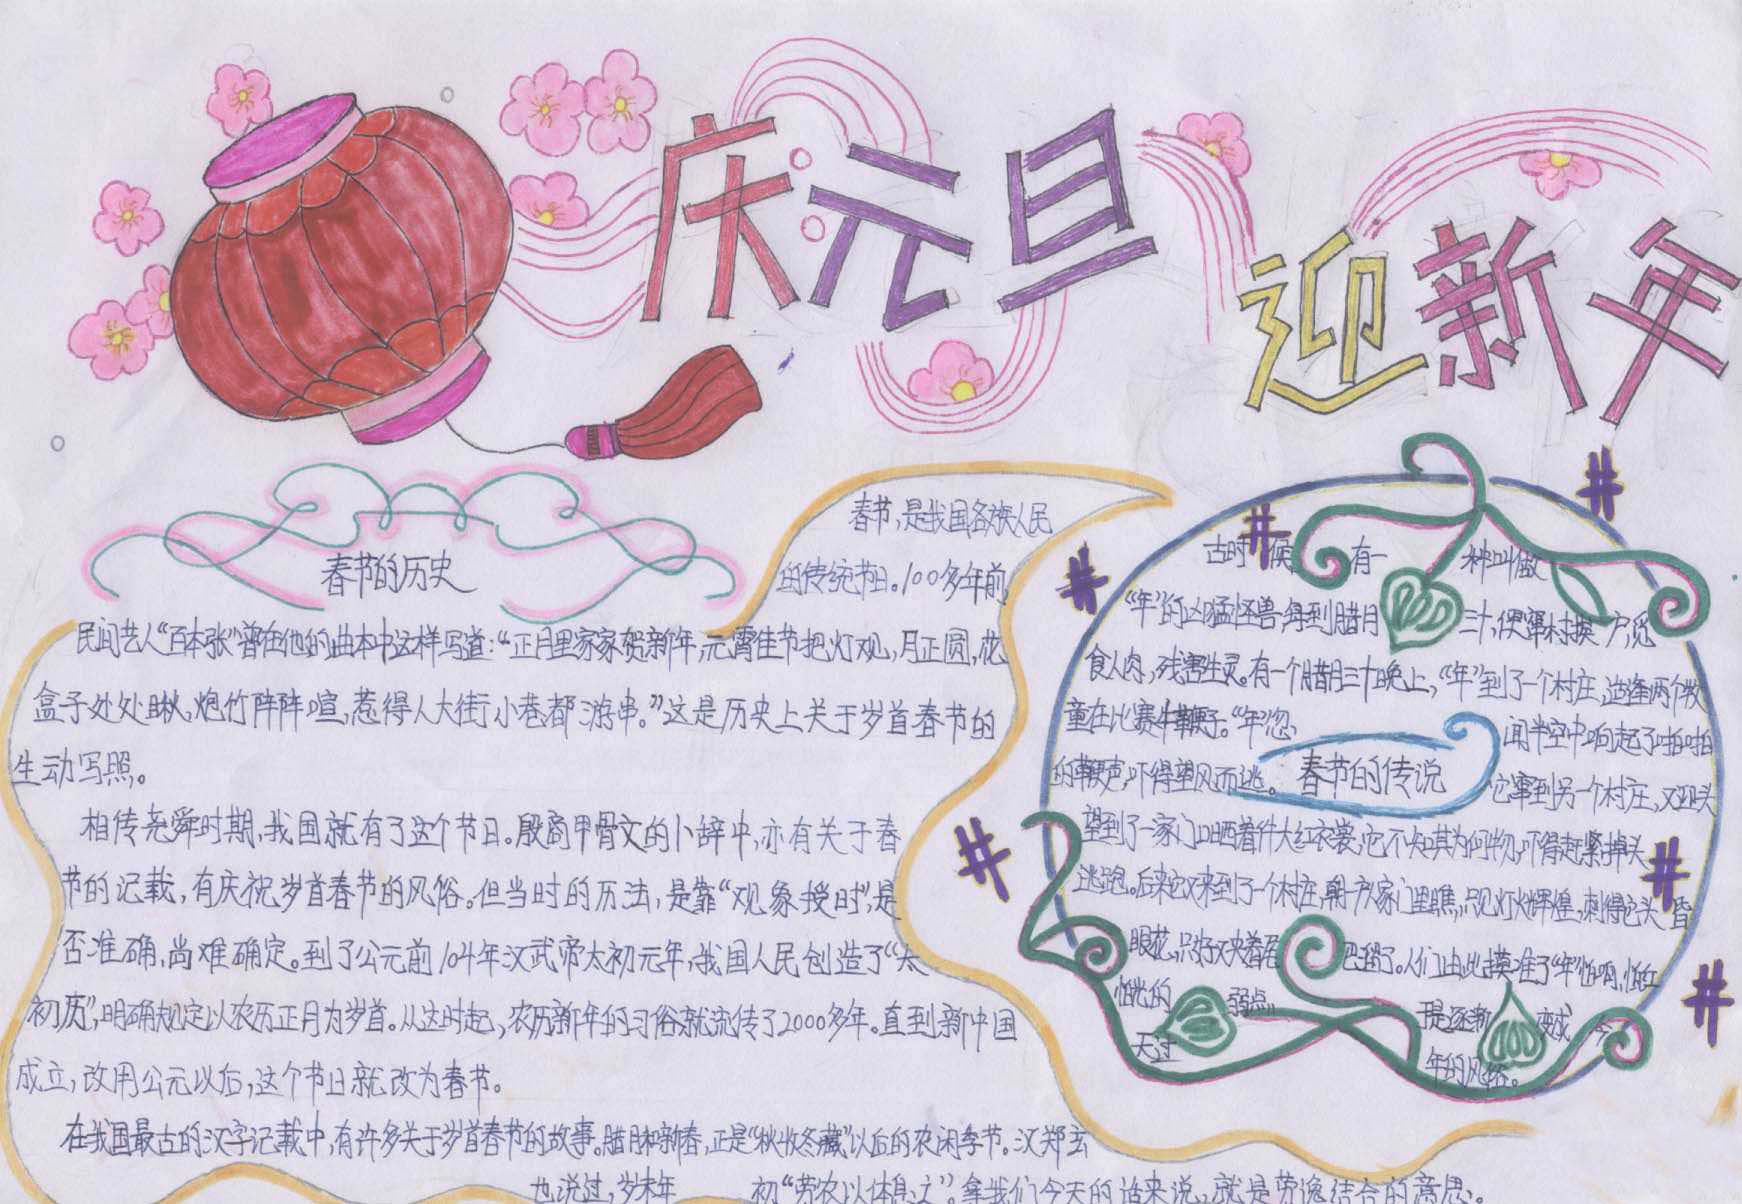 庆元旦
迎新年
春节的历史
春节,是我国各族人民
的传统节日。100多年前
民间艺人“百本张”曾在他的曲本中这样写道:“正月里家家贺新年,元霄佳节把灯观,月正圆,花
盒子处处瞅,炮竹阵阵喧,惹得人大街小巷都游串。”这是历史上关于岁首春节的
生动写照。
相传尧舜时期,我国就有了这个节日。殷商甲骨文的卜辞中,亦有关于春
节的记载,有庆祝岁首春节的风俗。但当时的历法,是靠“观象授时”,是
否准确,尚难确定。到了公元前104年汉武帝太初元年,我国人民创造了“太
初历”,明确规定以农历正月为岁首。从这时起,农历新年的习俗就流传了2000多年。直到新中国
成立,改用公元以后,这个节日就改为春节。
在我国最古的汉字记载中,有许多关于岁首春节的故事。腊月和新春,正是“秋收冬藏”以后的农闲季节。汉郑玄
也说过,岁末年初“劳农以休息之”。拿我们今天的话来说,就是劳逸结合的意思。
春节的传说
古时候 有一种叫做
“年”的凶猛怪兽,每到腊月三十,便窜村挨户,觅
食人肉,残害生灵。有一个腊月三十晚上,“年”到了一个村庄,适逢两个牧
童在比赛牛鞭子。“年”忽闻半空中响起了啪啪
的鞭声,吓得望风而逃。它窜到另一个村庄,又迎头
望到了一家门口晒着件大红衣裳,它不知其为何物,吓得赶紧掉头
逃跑。后来它又来到了一个村庄,朝一户人家门里瞧,只见灯火辉煌,刺得它头昏
眼花,只好又夹着尾巴溜了。人们由此摸准了“年”怕响,怕红
怕光的弱点
于是逐渐 变成 今
天过 年的风俗。